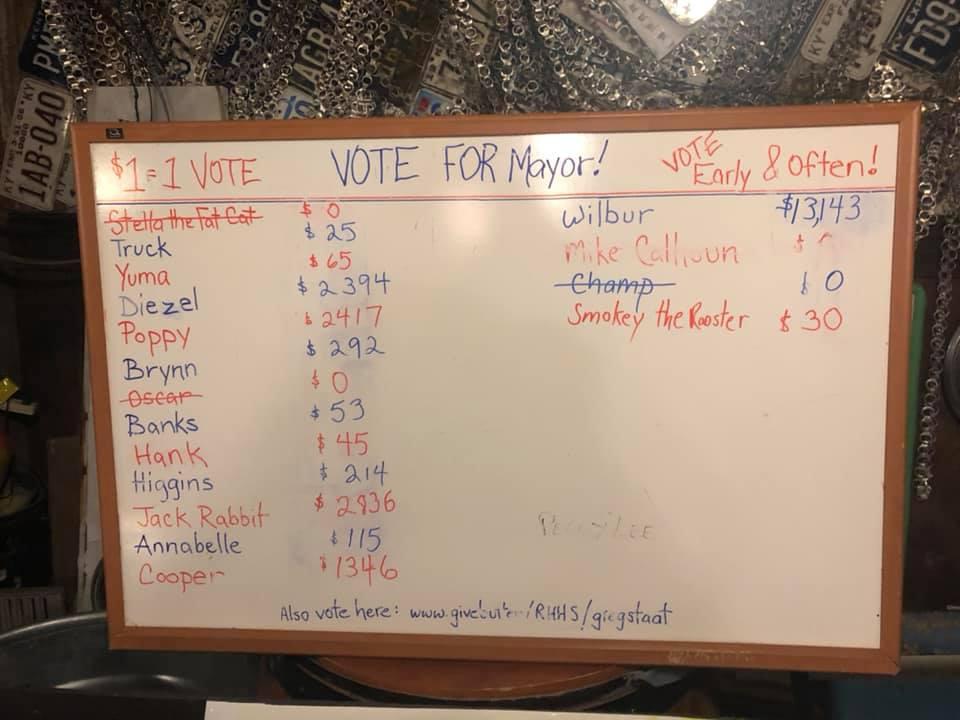 $1=1 VOTE VOTE FOR Mayor! VOTE Early & Often!
Stella the Fat Cat $ 0
Truck $ 25
Yuma $ 65
Diezel $ 2394
Poppy $ 2417
Brynn $ 292
Oscar $ 0
Banks $ 53
Hank $ 45
Higgins $ 214
Jack Rabbit $ 2836
Annabelle $ 115
Cooper $ 1346
Wilbur $13,143
Mike Calhoun $
Champ $ 0
Smokey the Rooster $ 30
Also vote here: RHHS/gregstaat
1AB-040
KY
FD9